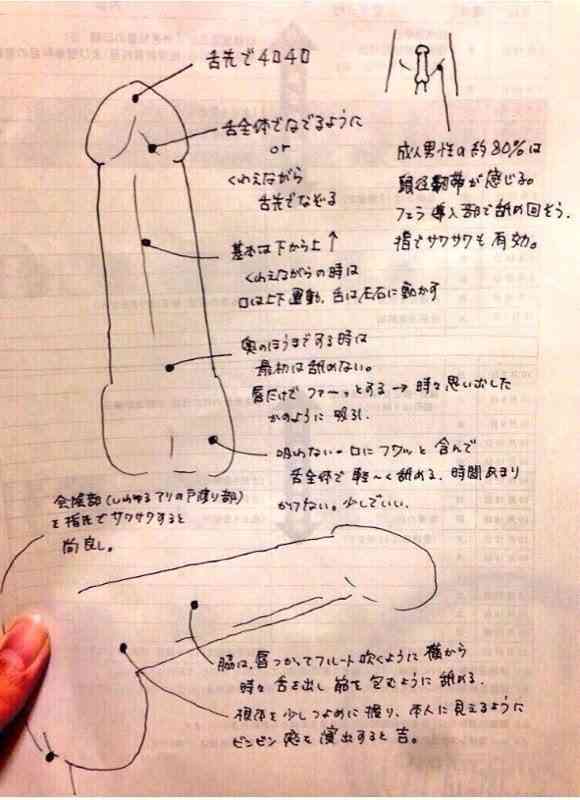 舌先でチロチロ
舌全体でなでるように
or
くわえながら
舌先でなぞる
成人男性の約80%は
鼠径靭帯が感じる。
フェラ導入部で舐め回そう。
指でサワサワも有効。
基本は下から上↑
くわえながらの時は
口は上下運動、舌は左右に動かす
奥のほうまでする時は
最初は舐めない。
唇だけでファーッとする→時々思い出した
かのように吸う。
吸わない→口にフワッと含んで
舌全体で軽〜く舐める。時間あまり
かけない。少しでいい。
会陰部(いわゆるアリの戸渡り部)
を指先でサワサワすると
尚良し。
脇は、唇つかってフルート吹くように横から
時々舌を出し筋を包むように舐める。
根本を少しつよめに握り、本人に見えるように
ビンビン感を演出すると吉。